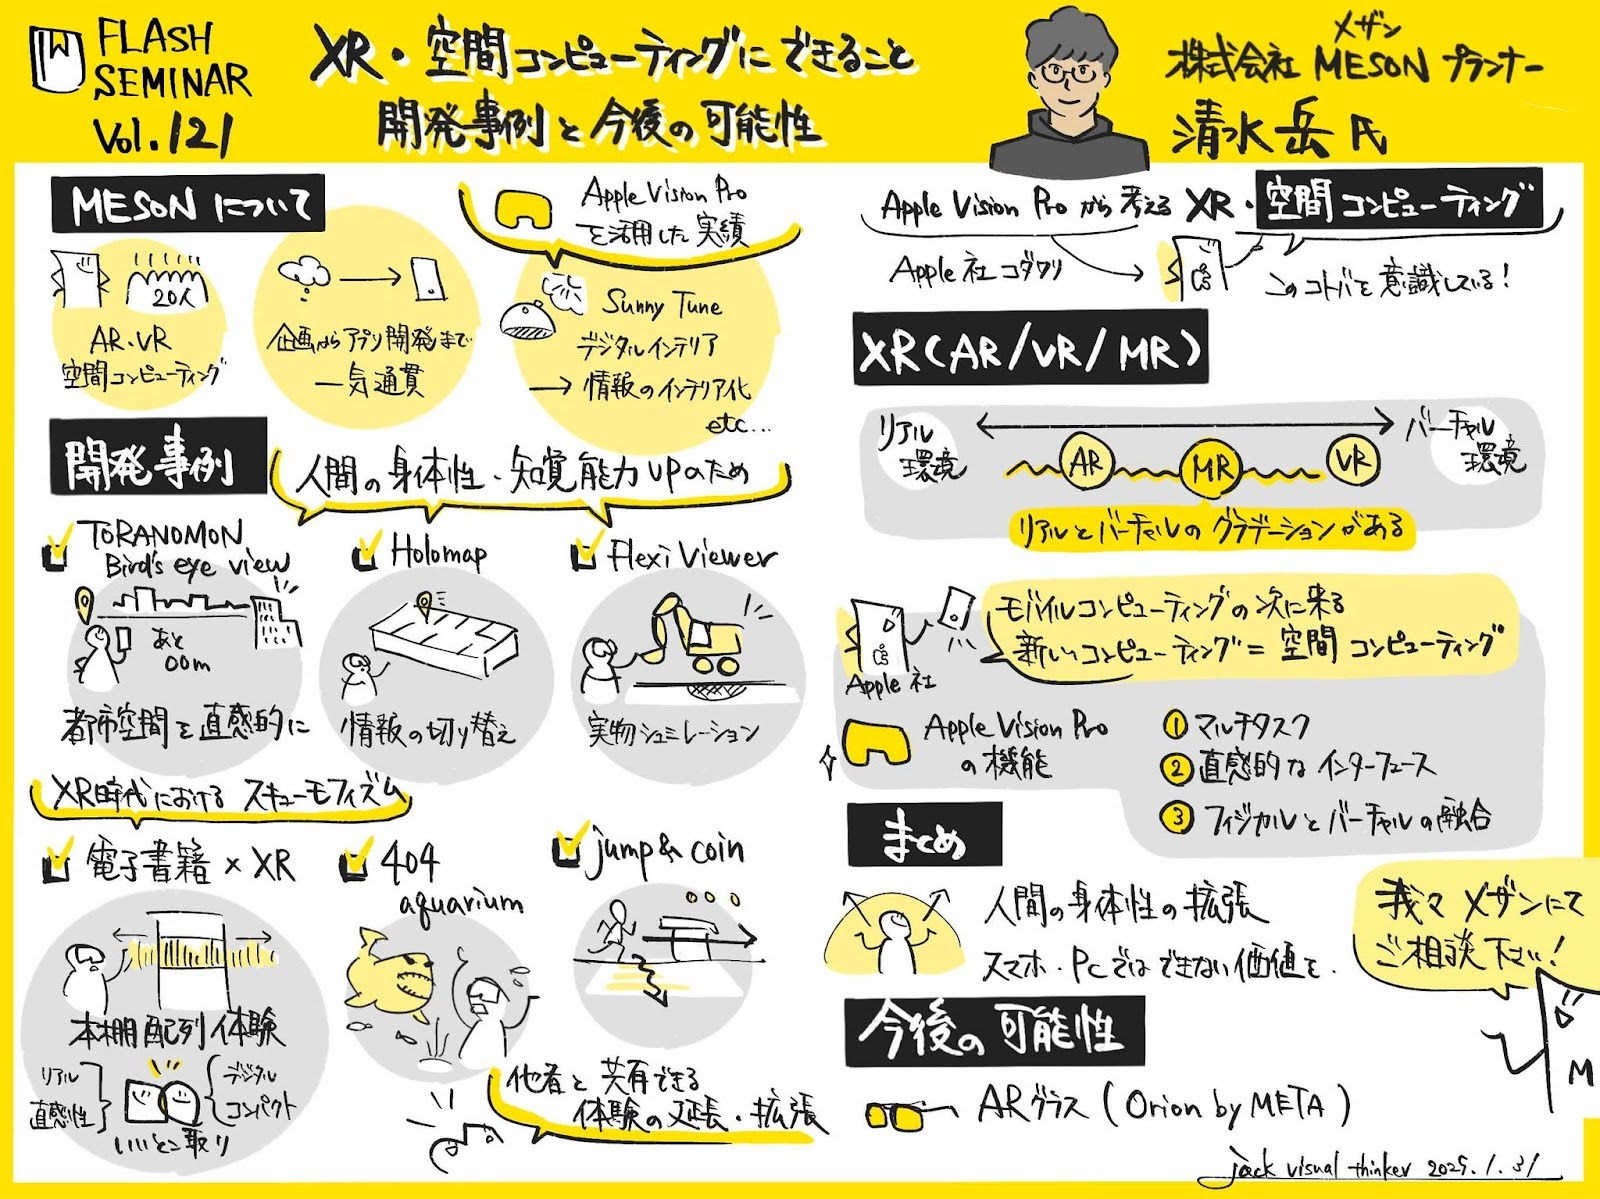 FLASH
SEMINAR
Vol.121
XR・空間コンピューティングにできること
開発事例と今後の可能性
メザン
株式会社 MESON プランナー
清水岳氏
MESONについて
20人
AR・VR
空間コンピューティング
企画からアプリ開発まで
一気通貫
Apple Vision Pro
を活用した実績
Sunny Tune
デジタルインテリア
→情報のインテリア化
etc...
開発事例
人間の身体性・知覚能力UPのため
TORANOMON
Bird's eye view
あと
00m
都市空間を直感的に
Holomap
情報の切り替え
Flexi Viewer
実物シュミレーション
XR時代における スキューモフィズム
電子書籍×XR
本棚配列体験
リアル
直感性
デジタル
コンパクト
いいとこ取り
404
aquarium
jump & coin
他者と共有できる
体験の延長・拡張
Apple Vision Proから考える XR・空間コンピューティング
Apple社コダワリ
このコトバを意識している!
XR(AR/VR/MR)
リアル
環境
AR
MR
VR
バーチャル
環境
リアルとバーチャルのグラデーションがある
モバイルコンピューティングの次に来る
新しいコンピューティング=空間コンピューティング
Apple社
Apple Vision Pro
の機能
①マルチタスク
②直感的なインターフェース
③フィジカルとバーチャルの融合
まとめ
人間の身体性の拡張
スマホ・PCではできない価値を.
我々メザンにて
ご相談下さい!
M
今後の可能性
ARグラス(Orion by META)
jack visual thinker 2025.1.31